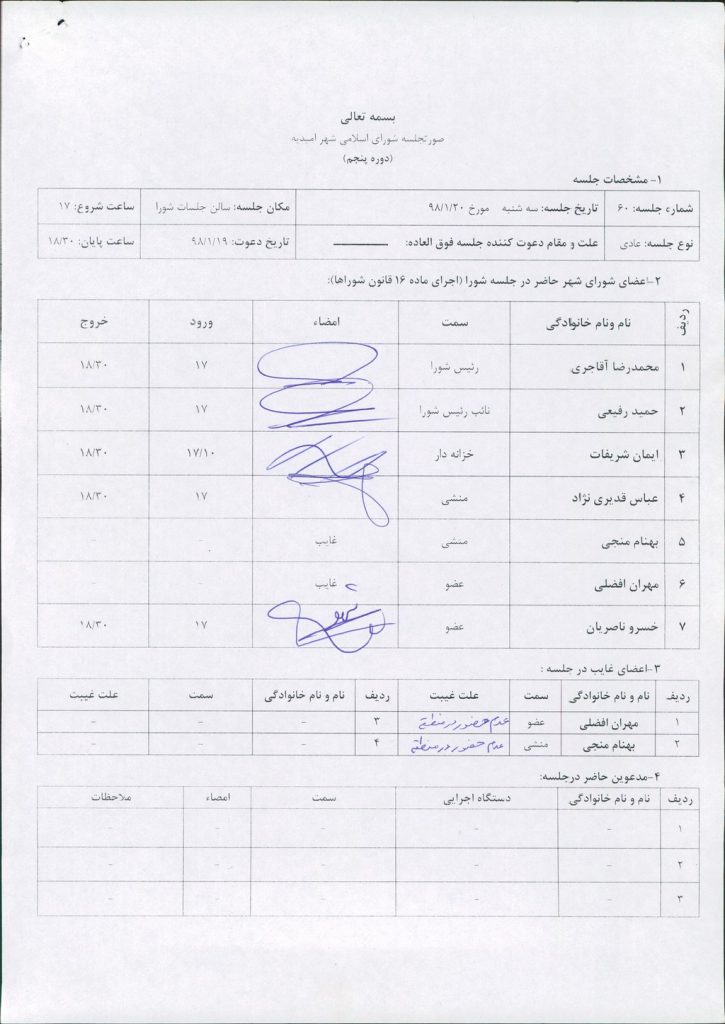 بسمه تعالی
صورتجلسه شورای اسلامی شهر امیدیه
(دوره پنجم)
۱- مشخصات جلسه
شماره جلسه: ۶۰ تاریخ جلسه: سه شنبه مورخ ۹۸/۱/۲۰ مکان جلسه: سالن جلسات شورا ساعت شروع: ۱۷
نوع جلسه: عادی علت و مقام دعوت کننده جلسه فوق العاده: ــــــــــــ تاریخ دعوت: ۹۸/۱/۱۹ ساعت پایان: ۱۸/۳۰
۲-اعضای شورای شهر حاضر در جلسه شورا (اجرای ماده ۱۶ قانون شوراها):
ردیف نام ونام خانوادگی سمت امضاء ورود خروج
۱ محمدرضا آقاجری رئیس شورا ۱۷ ۱۸/۳۰
۲ حمید رفیعی نائب رئیس شورا ۱۷ ۱۸/۳۰
۳ ایمان شریفات خزانه دار ۱۷/۱۰ ۱۸/۳۰
۴ عباس قدیری نژاد منشی ۱۷ ۱۸/۳۰
۵ بهنام منجی منشی غایب - -
۶ مهران افضلی عضو غایب - -
۷ خسرو ناصریان عضو ۱۷ ۱۸/۳۰
۳-اعضای غایب در جلسه :
ردیف نام و نام خانوادگی سمت علت غیبت ردیف نام و نام خانوادگی سمت علت غیبت
۱ مهران افضلی عضو عدم حضور در منطقه ۳ - - -
۲ بهنام منجی منشی عدم حضور در منطقه ۴ - - -
۴-مدعوین حاضر درجلسه:
ردیف نام و نام خانوادگی دستگاه اجرایی سمت امضاء ملاحظات
۱ - - - - -
۲ - - - - -
۳ - - - - -